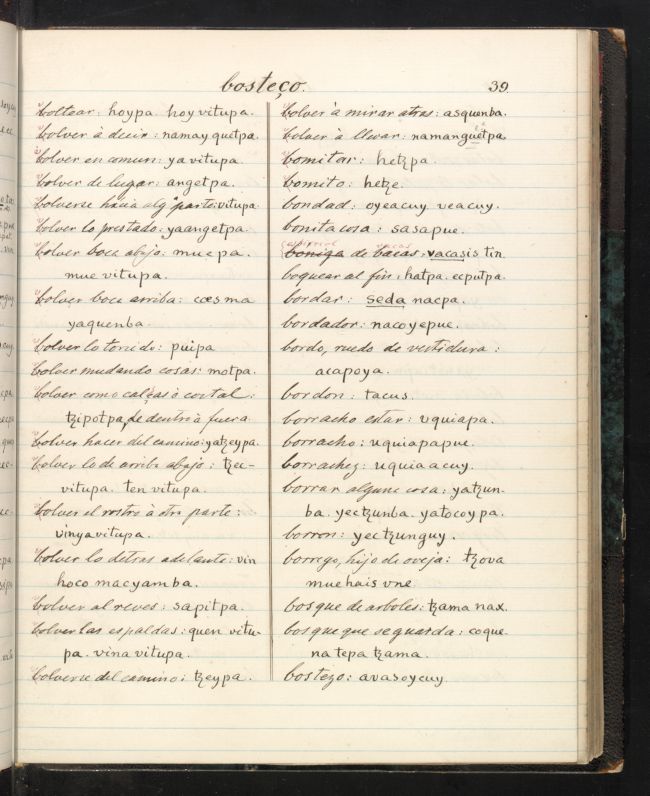 bosteço.
39.
boltear: hoypa. hoy vitupa.
bolver à decir: namay quetpa.
bolver en comun: ya vitupa.
bolver de lugar: angetpa.
bolverse hacia alg.ª parte: vitupa.
bolver lo prestado: yaangetpa.
bolver boca abajo: mue pa.
mue vitupa.
bolver boca arriba: cœs ma
yaquenba.
bolver lo torcido: puipa
bolver mudando cosas: motpa.
bolver como calças ò costal:
tzipotpa, de dentro à fuera
bolver hacer del camino: yatzeypa.
bolver lo de arriba abajo: tzec-
vitupa. ten vitupa.
bolver el rostro à otra parte:
vinyavitupa.
bolver lo detras adelante: vin
hoco macyamba.
bolver al reves: sapitpa.
bolver las espaldas: quen vitu-
pa. vina vitupa.
bolverse del camino: tzeypa.
bolver à mirar atras: asquenba.
bolver à llevar: namanguetpa.
bomitar: hetzpa.
bomito: hetze.
bondad: oyeacuy. veacuy.
bonita cosa: sasapue.
boñiga de bacas: vacasis tin
boquear al fin: hatpa. ecputpa.
bordar: seda nacpa.
bordador: nacoyepue.
bordo, ruedo de vestidura:
acapoya.
bordon: tacus.
borracho estar: uquiapa.
borracho: uquiapapue.
borrachez: uquiaacuy.
borrar alguna cosa: yatzun-
ba. yectzunba. yatocoypa.
borron: yectzunguy.
borrego, hijo de oveja: tzova
muehais vne
bosque de arboles: tzama nax.
bosque que se guarda: coque.
natepa tzama.
bostezo: avasoycuy.